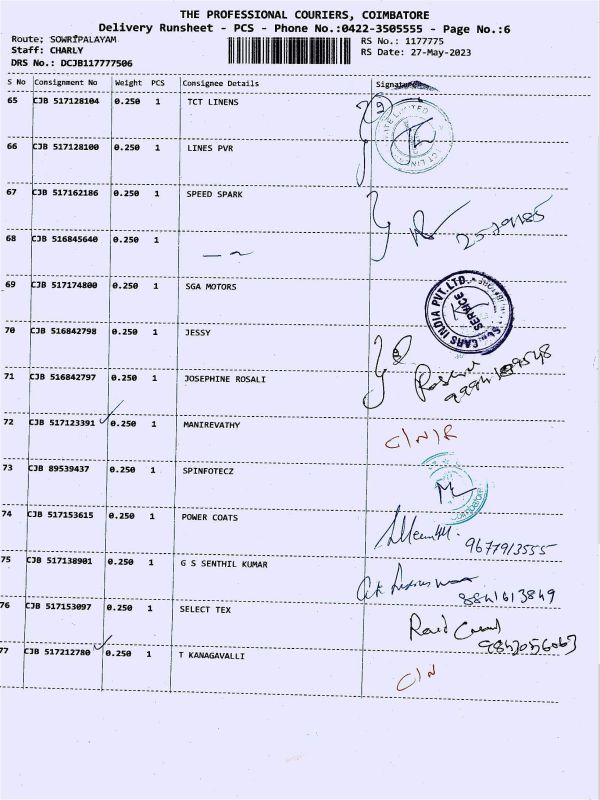 THE PROFESSIONAL COURIERS, COIMBATORE
Delivery Runsheet - PCS - Phone No.:0422-3505555 - Page No.:6
Route: SOWRIPALAYAM RS No.: 1177775
Staff: CHARLY RS Date: 27-May-2023
DRS No.: DCJB117777506
S No Consignment No Weight PCS Consignee Details Signature
65 CJB 517128104 0.250 1 TCT LINENS
66 CJB 517128100 0.250 1 LINES PVR
67 CJB 517162186 0.250 1 SPEED SPARK
68 CJB 516845640 0.250 1
69 CJB 517174800 0.250 1 SGA MOTORS
CARS INDIA PVT.LTD. SERVICE
70 CJB 516842798 0.250 1 JESSY
71 CJB 516842797 0.250 1 JOSEPHINE ROSALI
72 CJB 517123391 0.250 1 MANIREVATHY C/N/R
73 CJB 89539437 0.250 1 SPINFOTECZ
74 CJB 517153615 0.250 1 POWER COATS 9677913555
75 CJB 517138901 0.250 1 G S SENTHIL KUMAR 8841613849
76 CJB 517153097 0.250 1 SELECT TEX 9843056063
77 CJB 517212780 0.250 1 T KANAGAVALLI C/N